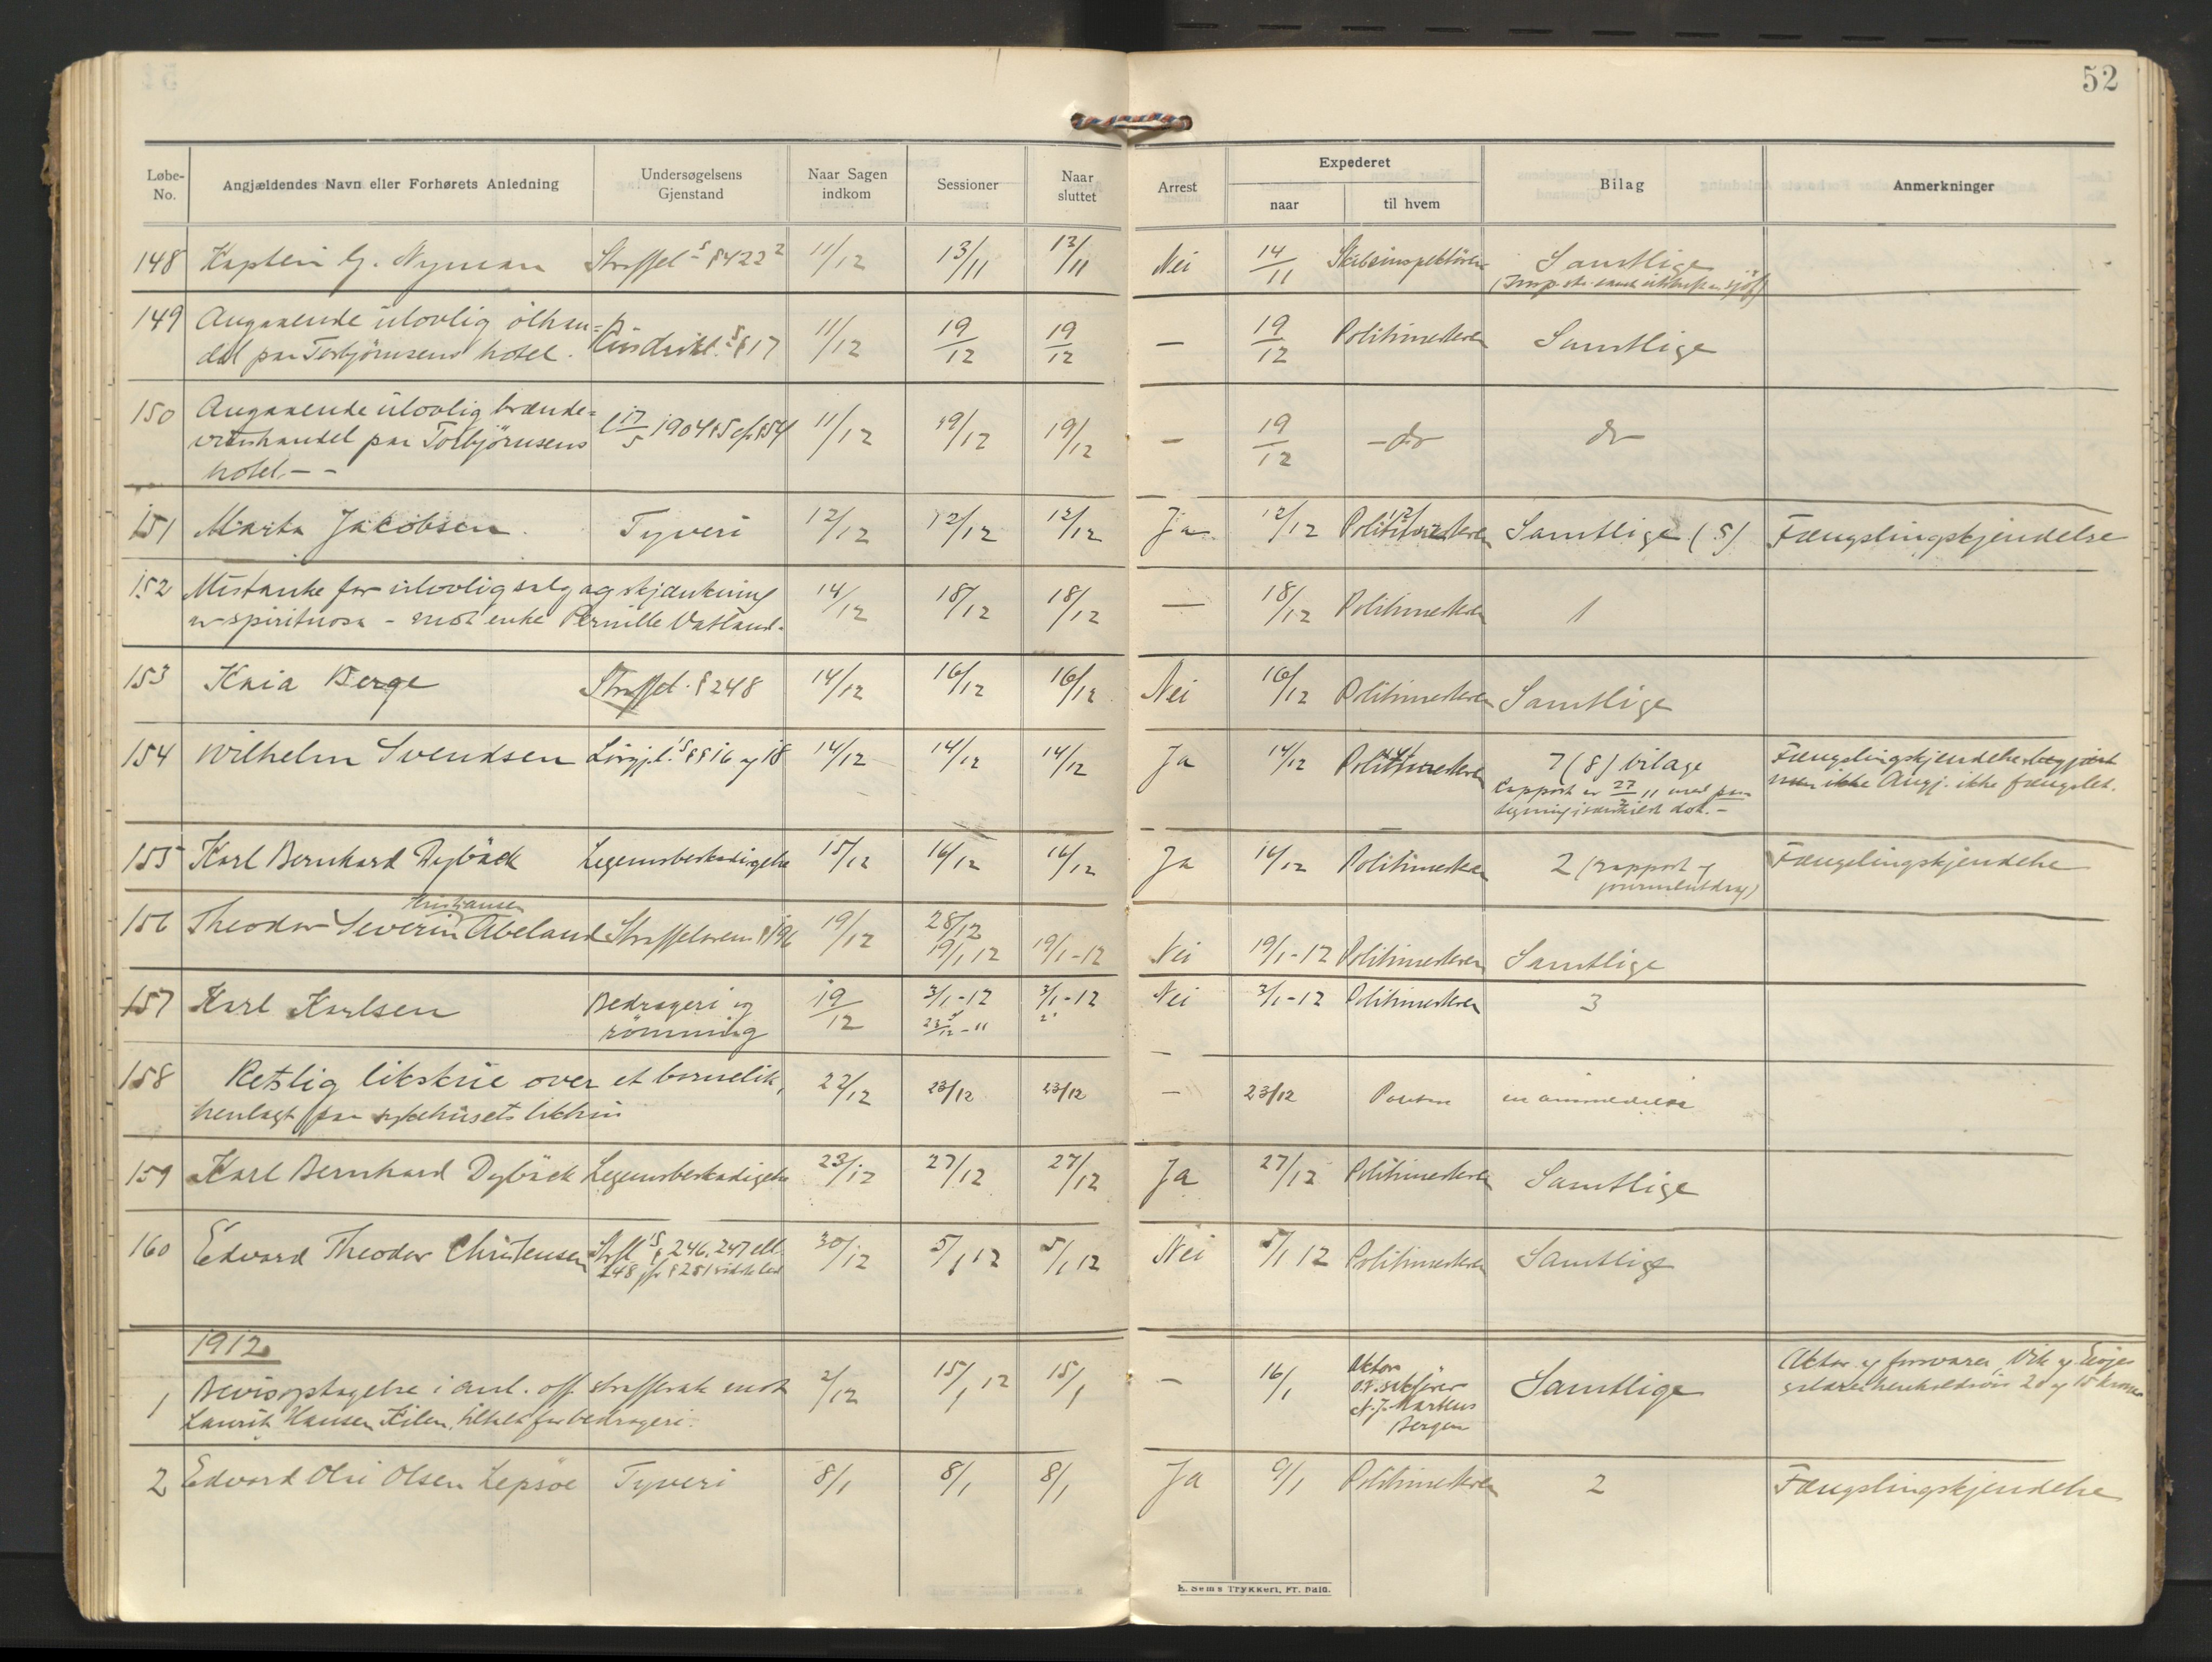 52
Løbe-No. Angjældendes Navn eller Forhørets Anledning Undersøgelsens Gjenstand Naar Sagen indkom Sessioner Naar sluttet Arrest Expederet naar til hvem Bilag Anmerkninger
148 Kaptein G. Nyman Straffel s § 422 2 11/12 13/11 13/11 Nei 14/11 Skibsinspektören Samtlige
149 Angaaende ulovlig ölhan= 11/12 19/12 19/12 — 19/12 Politimesteren Samtlige
del paa Torbjörnsens hotel. § 17
150 Angaaende ulovlig brænde= l 17/5 1904 § 5 cfr § 54 11/12 19/12 19/12 — 19/12 - do do
vinshandel paa Torbjörnsens
hotel. - -
151 Marta Jacobsen. Tyveri 12/12 12/12 12/12 Ja 12/12 Politimesteren Samtlige (5) Fængslingskjendelse
152 Mistanke for ulovlig salg og skjænkning 14/12 18/12 18/12 — 18/12 Politimesteren 1
av spirituosa - mot enke Pernille Vatland.
153 Kaia Berge Straffel. § 248 14/12 16/12 16/12 Nei 16/12 Politimesteren Samtlige
154 Wilhelm Svendsen Lösgjl. s §§ 16 og 18 14/12 14/12 14/12 Ja 14/12 Politimesteren 7 (8) bilage Fængslingskjendelse begjært
Rapport av 27/11 med paa- men ikke Angj. ikke fængslet.
tegning i særskilt dok. -
155 Karl Bernhard Dybäck Legemsbeskadigelse 15/12 16/12 16/12 Ja 16/12 Politimesteren 2 (rapport og Fængslingskjendelse
journaludrag)
Kristiansen
156 Theodor Severin Abeland Straffelovens § 196 19/12 28/12
19/1 12 19/1-12 Nei 19/1-12 Politimesteren Samtlige
157 Karl Karlsen Bedrageri og 19/12 3/1-12 3/1-12 Nei 3/1-12 Politimesteren 3
römning 23/12-11
158 Retslig likskue over et barnelik, 22/12 23/12 23/12 — 23/12 en anmeldelse
henlagt paa sykehusets likhus
159 Karl Bernhard Dybäck Legemsbeskadigelse 23/12 27/12 27/12 Ja 27/12 Politimesteren Samtlige
160 Edvard Theodor Christensen Strfl s § 246, 247 ell. 30/12 5/1 12 5/1 12 Nei 5/1 12 Politimesteren Samtlige
248 jfr § 251 sidste led
1912
1 Bevisoptagelse i anl. off. straffesak mot 2/12 15/1 12 15/1 — 16/1 Aktor Samtlige Aktor og forsvarer Vik og
Laurits Hansen Kilen, tiltalt for bedrageri. O.r.sakförer 20 og 15 kroner
N. J. Martens
Bergen
2 Edvard Olai Olsen Lepsöe Tyveri 8/1 8/1 8/1 Ja 9/1 Politimesteren 2 Fængslingskjendelse
E. Sems Trykkeri, Fr. hald.